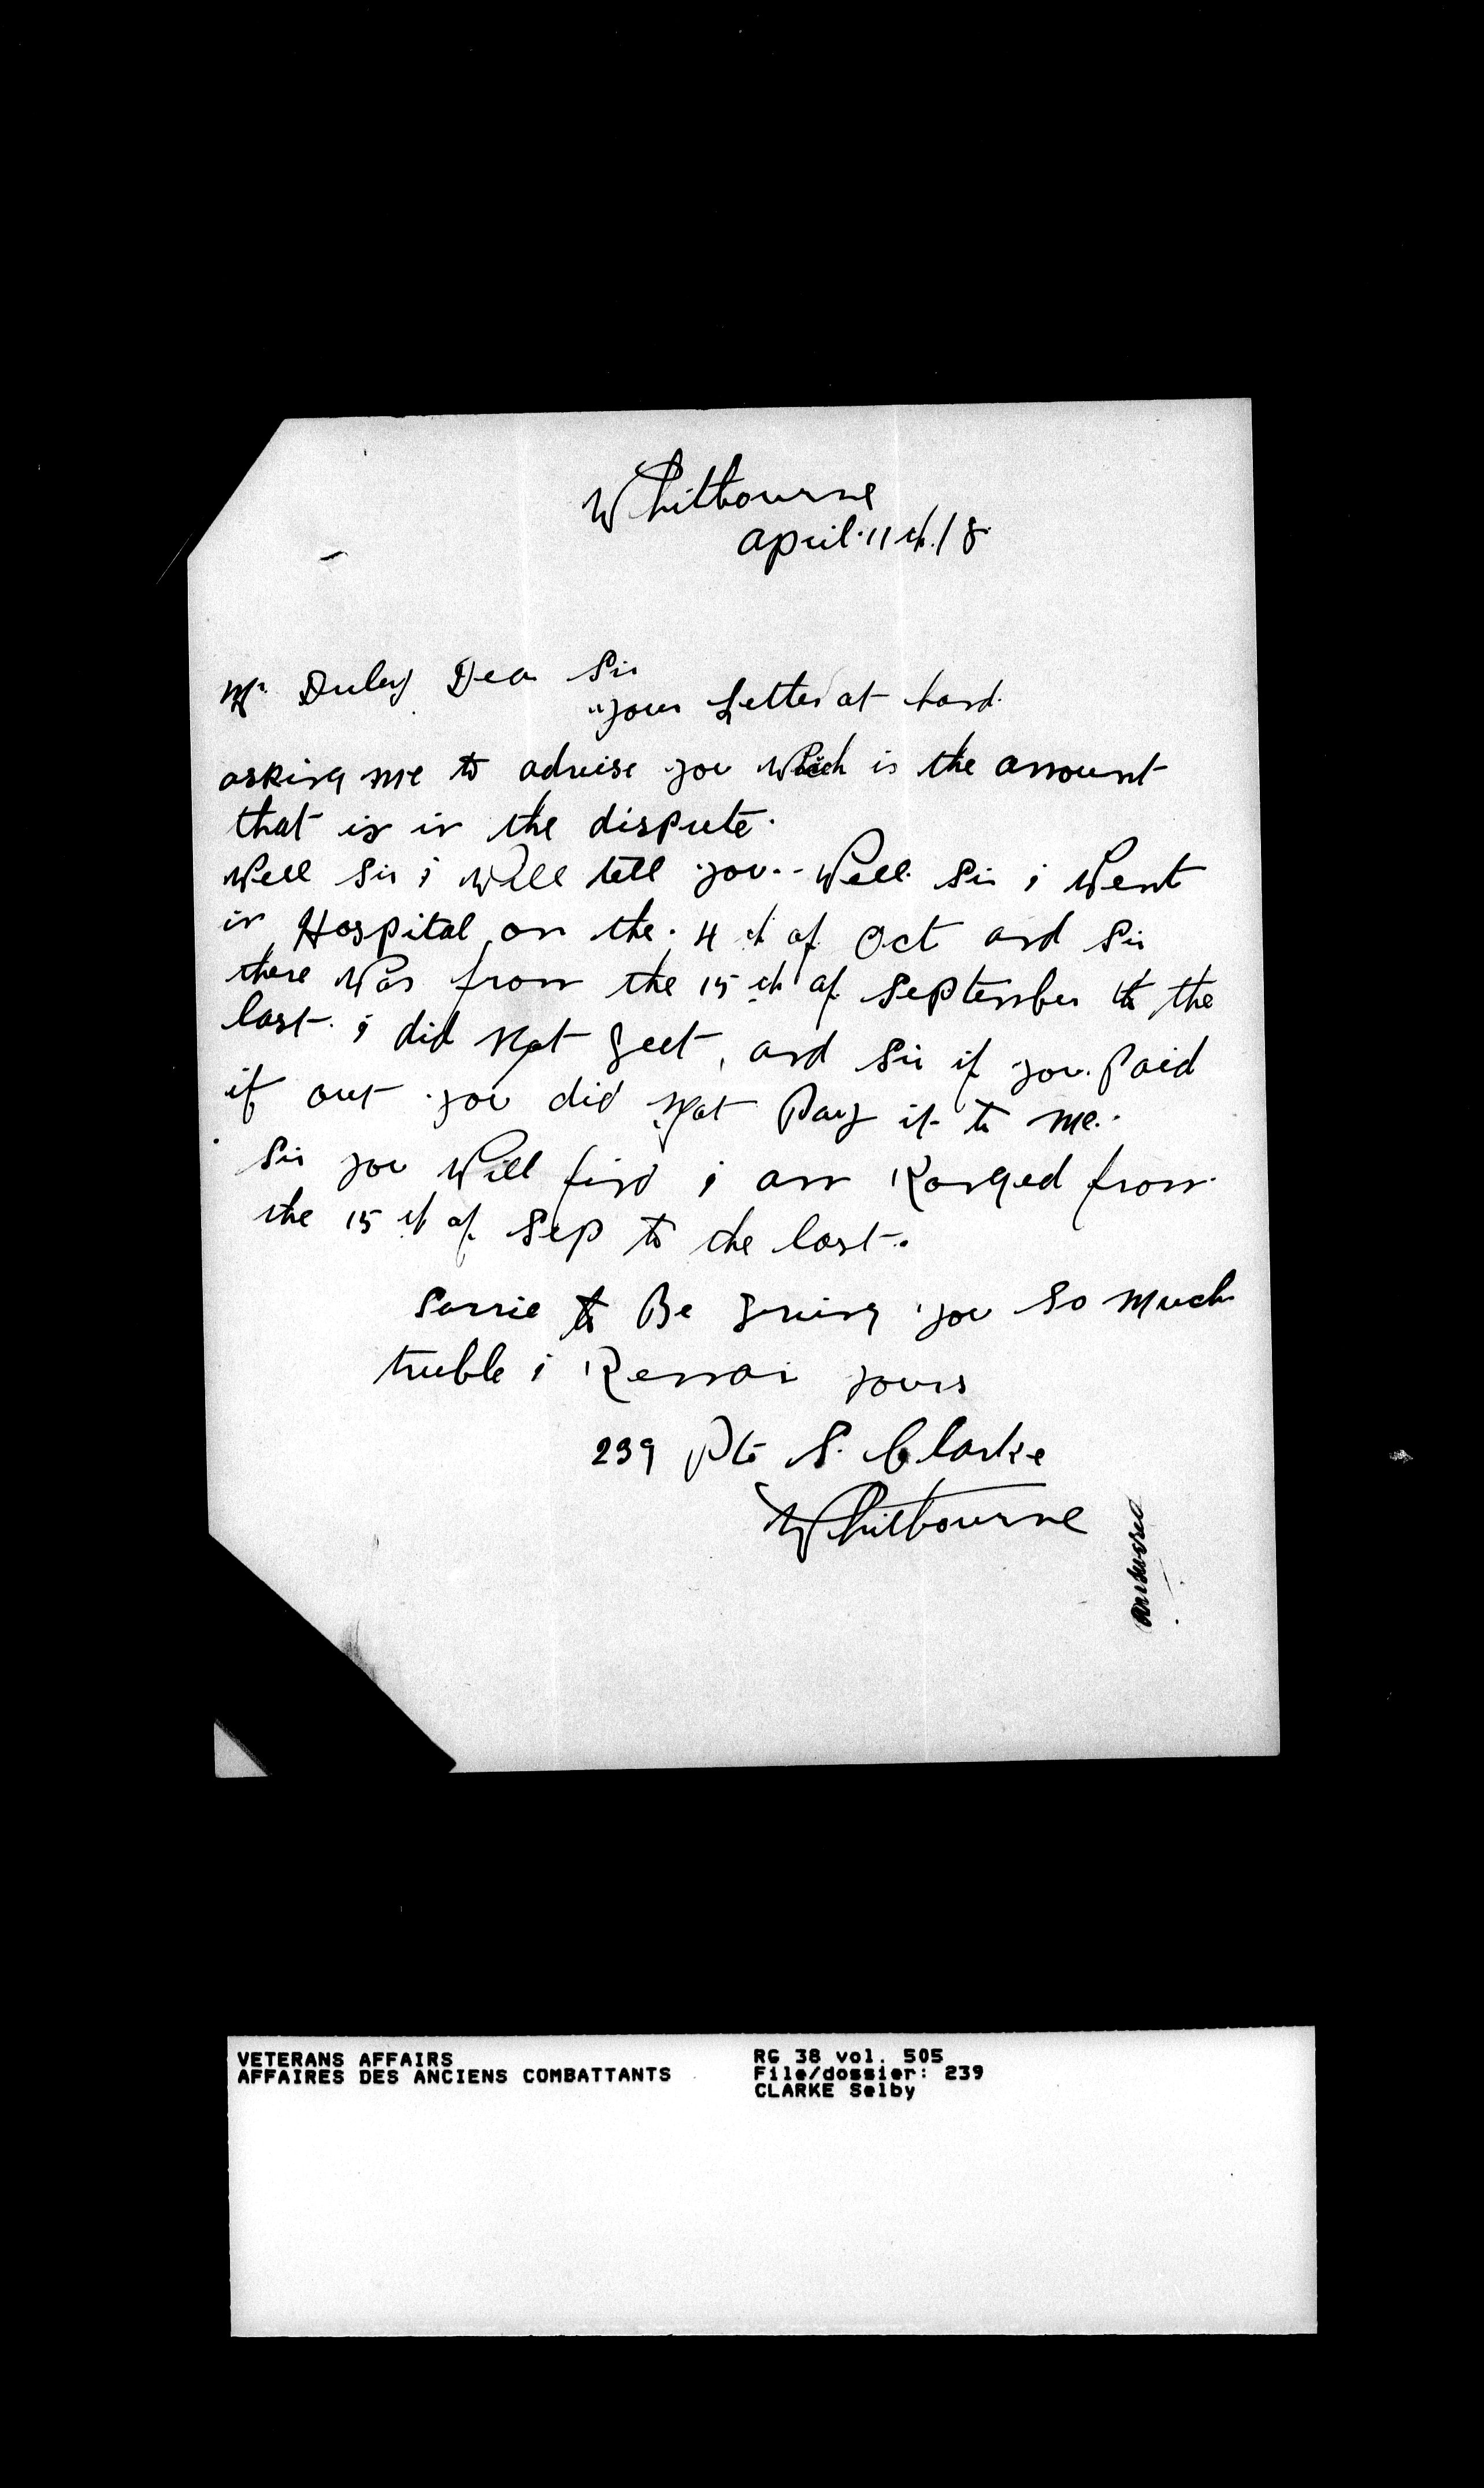 Whitbourne
april. 11th. / 8.
Mr Duley Dea Sir
your Letter at hand.
asking me to advise you Which is the amount
that is in the dispute.
Well Sir i Will tell you.- Well. Sir i Went
in Hospital on the. 4 th of. Oct and Sir
there Was from the 15 th of September to the
last. i did Not Geet, and Sir if you. Paid
it out you did Not Pay it to me.
Sir you Will find i am Ranged from.
the 15 th of. Sep to the last.
Sorrie to Be Giving you So Much
truble i Remain yours
239 Pte S. Clarke
Whitbourne
Answered
VETERANS AFFAIRS
AFFAIRES DES ANCIENS COMBATTANTS
RG 38 vol. 505
File/dossier: 239
CLARKE Selby